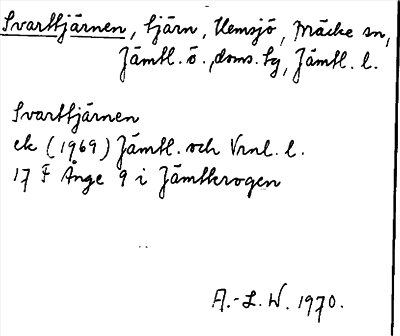 Svarttjärnen, tjärn, Hemsjö, Bräcke sn,
Jämtl. ö. doms. tg, Jämtl. l.
Svarttjärnen
ek (1969) Jämtl. och Vrnl. l.
17 F Ånge 9 i Jämtkrogen
A.-L. W. 1970.